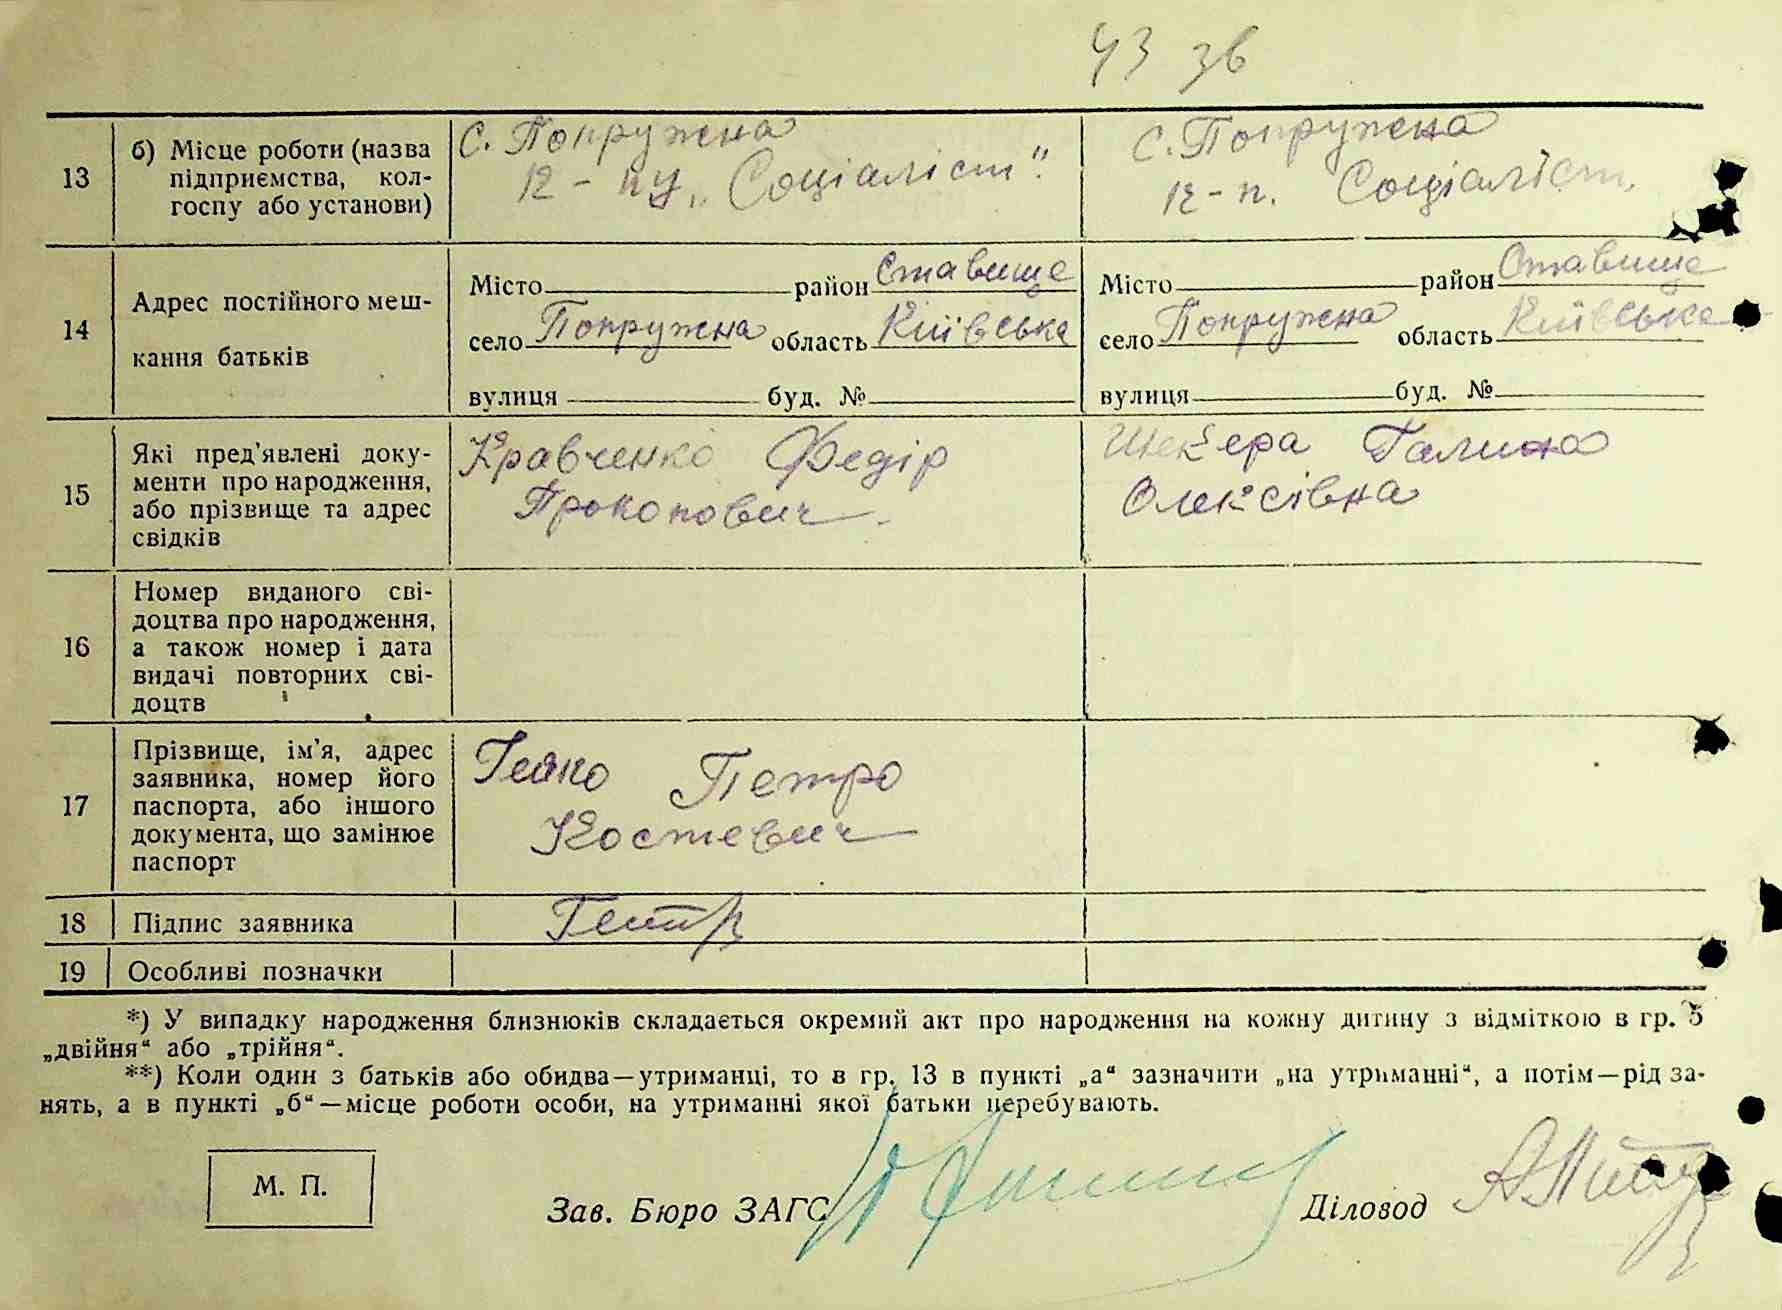 43 зв
13 б) Місце роботи (назва підприємства, колгоспу або установи)
с. Попружна
к-п у „Соціаліст".
с. Попружна
к-п. Соціаліст.
14 Адрес постійного меш-
кання батьків
Місто район Ставище
село Попружна область Київська
вулиця буд. №
Місто район Ставище
село Попружна область Київська
вулиця буд. №
15 Які пред'явлені доку-
менти про народження,
або прізвище та адрес
свідків
Кравченко Федір
Прокопович.
Шекера Галина
Олексівна
16 Номер виданого сві-
доцтва про народження,
а також номер і дата
видачі повторних сві-
доцтв
17 Прізвище, ім'я, адрес
заявника, номер його
паспорта, або іншого
документа, що замінює
паспорт
Гейко Петро
Костевич
18 Підпис заявника
19 Особливі позначки
*) У випадку народження близнюків складається окремий акт про народження на кожну дитину з відміткою в гр. 5
„двійня“ або „трійня“.
**) Коли один з батьків або обидва—утриманці, то в гр. 13 в пункті „а“ зазначити „на утриманні“, а потім—рід за-
нять, а в пункті „б“—місце роботи особи, на утриманні якої батьки перебувають.
М. П.
Зав. Бюро ЗАГС
Діловод